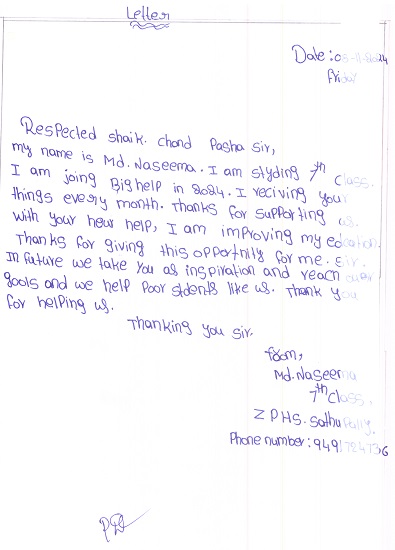 Letter
Date: 05-11-2024
Friday
Respected shaik. chand Pasha sir,
my name is Md. Naseema. I am styding 7th class.
I am joing Bighelp in 2024. I reciving your
things every month. Thanks for supporting us.
with your heur help, I am improving my education.
Thanks for giving this opportnity for me. sir.
In future we take you as inspiration and reach ouer
goals and we help poor stdents like us. Thank you
for helping us.
Thanking you sir.
from,
Md. Naseema
7th class.
ZPHS. Sathupally.
Phone number: 9491724736